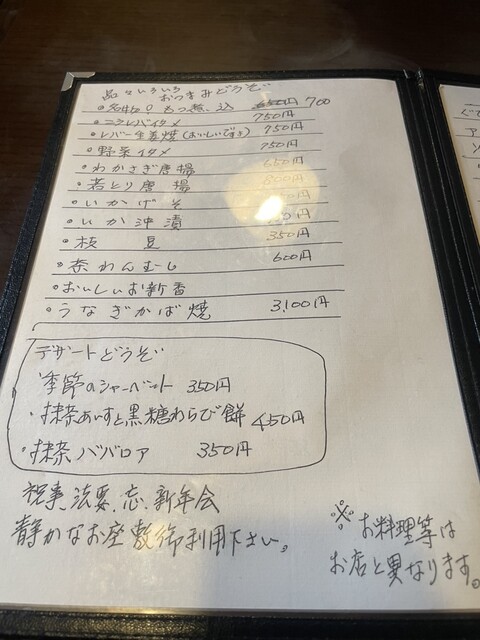 品々いろいろ おつまみどうぞ
名物 もつ煮込 円 700
ニラレバイタメ 750円
レバー生姜焼(おいしいです) 750円
野菜イタメ 750円
わかさぎ唐揚 650円
若とり唐揚 円
いかげそ 円
いか沖漬 円
枝豆 350円
茶わんむし 600円
おいしいお新香
うなぎかば焼 3,100円
デザートどうぞ
季節のシャーベット 350円
抹茶あいすと黒糖わらび餅 450円
抹茶ババロア 350円
祝事、法要、忘、新年会
静かなお座敷御利用下さい。
※お料理等は
お店と異なります。